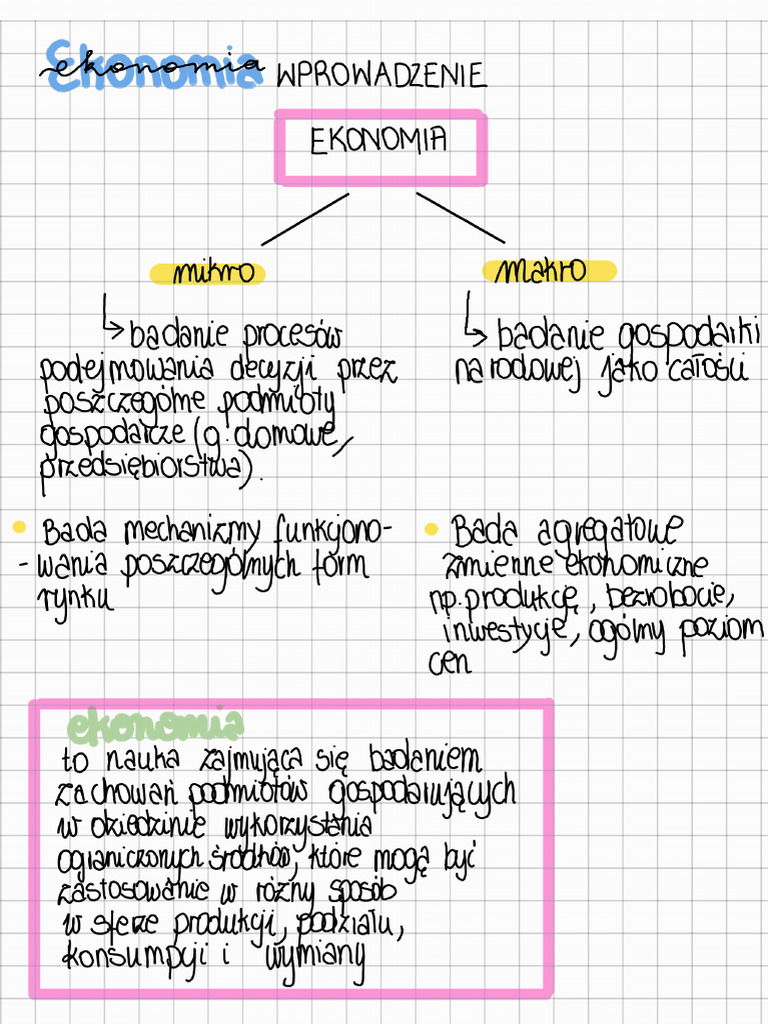 Ekonomia WPROWADZENIE
EKONOMIA
mikro
makro
badanie procesów
podejmowania decyzji przez
poszczególne podmioty
gospodarcze (g. domowe,
przedsiębiorstwa).
badanie gospodarki
narodowej jako całości
Bada mechanizmy funkcjono-
-wania poszczególnych form
rynku
Bada agregatowe
zmienne ekonomiczne
np. produkcję, bezrobocie,
inwestycje, ogólny poziom
cen
ekonomia
to nauka zajmująca się badaniem
zachowań podmiotów gospodarujących
w dziedzinie wykorzystania
ograniczonych środków, które mogą być
zastosowanie w różny sposób
w sferze produkcji, podziału,
konsumpcji i wymiany